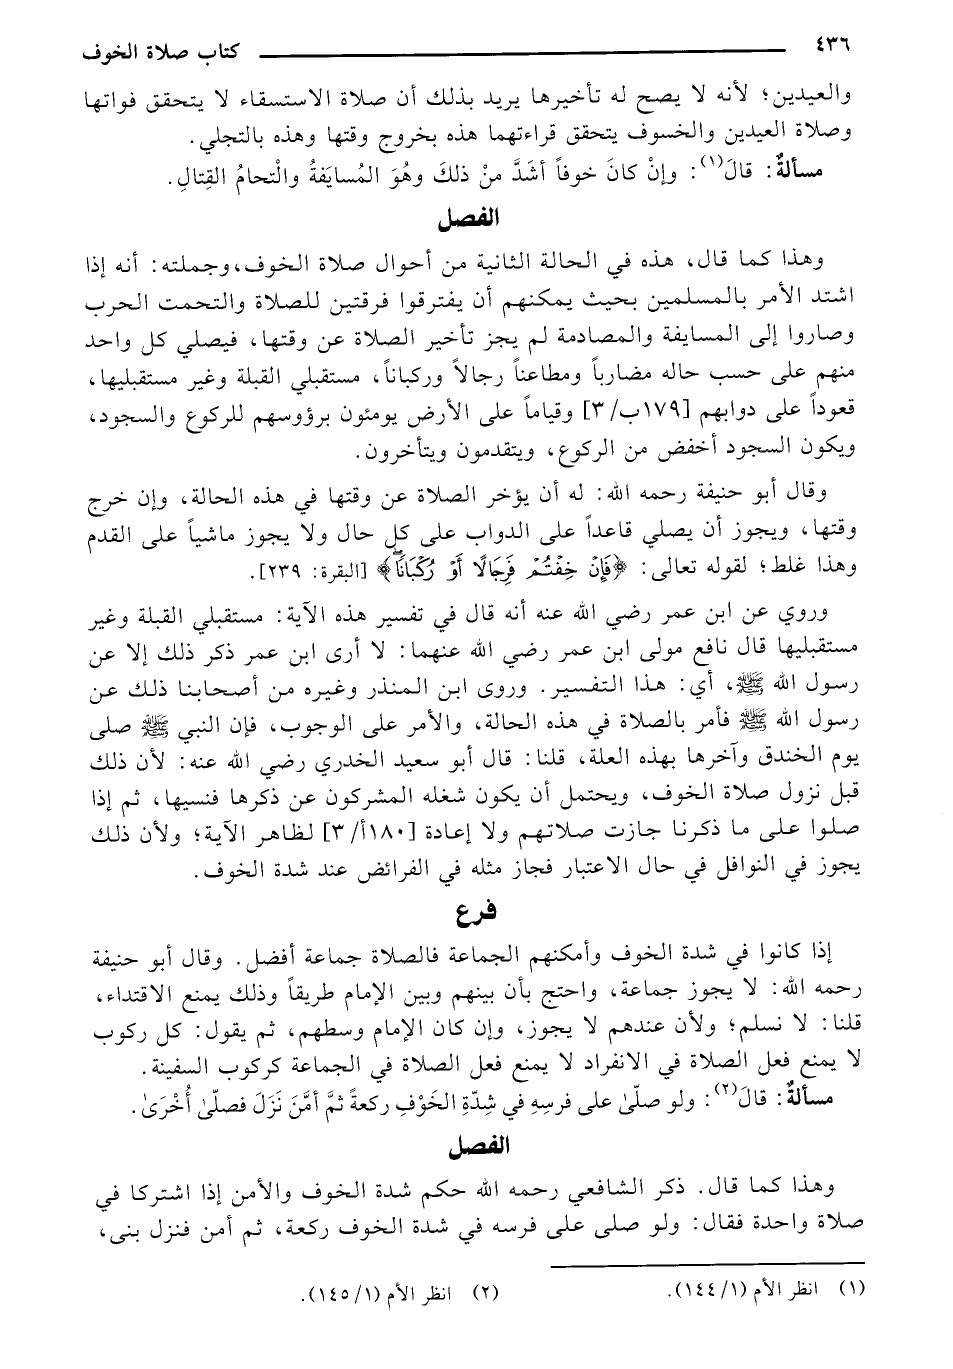 ٤٣٦ كتاب صلاة الخوف
والعيدين؛ لأنه لا يصح له تأخيرها يريد بذلك أن صلاة الاستسقاء لا يتحقق فواتها
وصلاة العيدين والخسوف يتحقق قراءتهما هذه بخروج وقتها وهذه بالتجلي.
مسألةٌ: قالَ(١): وإنْ كانَ خوفاً أشَدَّ منْ ذلكَ وهُوَ المُسايَفةُ والْتحامُ القِتالِ.
الفصل
وهذا كما قال، هذه في الحالة الثانية من أحوال صلاة الخوف، وجملته: أنه إذا
اشتد الأمر بالمسلمين بحيث يمكنهم أن يفترقوا فرقتين للصلاة والتحمت الحرب
وصاروا إلى المسايفة والمصادمة لم يجز تأخير الصلاة عن وقتها، فيصلي كل واحد
منهم على حسب حاله مضارباً ومطاعناً رجالاً وركباناً، مستقبلي القبلة وغير مستقبليها،
قعوداً على دوابهم [١٧٩ب/ ٣] وقياماً على الأرض يومئون برؤوسهم للركوع والسجود،
ويكون السجود أخفض من الركوع، ويتقدمون ويتأخرون.
وقال أبو حنيفة رحمه الله: له أن يؤخر الصلاة عن وقتها في هذه الحالة، وإن خرج
وقتها، ويجوز أن يصلي قاعداً على الدواب على كل حال ولا يجوز ماشياً على القدم
وهذا غلط؛ لقوله تعالى: ﴿فَإِنْ خِفْتُمْ فَرِجَالًا أَوْ رُكْبَانًا﴾ [البقرة: ٢٣٩].
وروي عن ابن عمر رضي الله عنه أنه قال في تفسير هذه الآية: مستقبلي القبلة وغير
مستقبليها قال نافع مولى ابن عمر رضي الله عنهما: لا أرى ابن عمر ذكر ذلك إلا عن
رسول الله ﷺ، أي: هذا التفسير. وروى ابن المنذر وغيره من أصحابنا ذلك عن
رسول الله ﷺ فأمر بالصلاة في هذه الحالة، والأمر على الوجوب، فإن النبي ﷺ صلى
يوم الخندق وآخرها بهذه العلة، قلنا: قال أبو سعيد الخدري رضي الله عنه: لأن ذلك
قبل نزول صلاة الخوف، ويحتمل أن يكون شغله المشركون عن ذكرها فنسيها، ثم إذا
صلوا على ما ذكرنا جازت صلاتهم ولا إعادة [١٨٠أ/ ٣] لظاهر الآية؛ ولأن ذلك
يجوز في النوافل في حال الاعتبار فجاز مثله في الفرائض عند شدة الخوف.
فرع
إذا كانوا في شدة الخوف وأمكنهم الجماعة فالصلاة جماعة أفضل. وقال أبو حنيفة
رحمه الله: لا يجوز جماعة، واحتج بأن بينهم وبين الإمام طريقاً وذلك يمنع الاقتداء،
قلنا: لا نسلم؛ ولأن عندهم لا يجوز، وإن كان الإمام وسطهم، ثم يقول: كل ركوب
لا يمنع فعل الصلاة في الانفراد لا يمنع فعل الصلاة في الجماعة كركوب السفينة.
مسألةٌ: قالَ(٢): ولو صلّىٰ على فرسِهِ في شِدّةِ الخَوْفِ ركعةً ثمَّ أمَّنَ نَزَلَ فصلّىٰ أُخْرَىٰ.
الفصل
وهذا كما قال. ذكر الشافعي رحمه الله حكم شدة الخوف والأمن إذا اشتركا في
صلاة واحدة فقال: ولو صلى على فرسه في شدة الخوف ركعة، ثم أمن فنزل بنى،
(١) انظر الأم (١/ ١٤٤). (٢) انظر الأم (١/ ١٤٥).